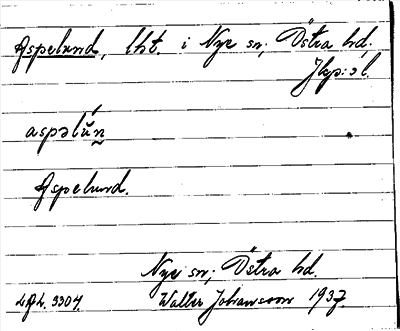 Aspelund, lht. i Nye sn; Östra hd.
Jkp:s l.
aspəlŭ́ṉ
Aspelund.
Nye sn; Östra hd.
Walter Johansson 1937.